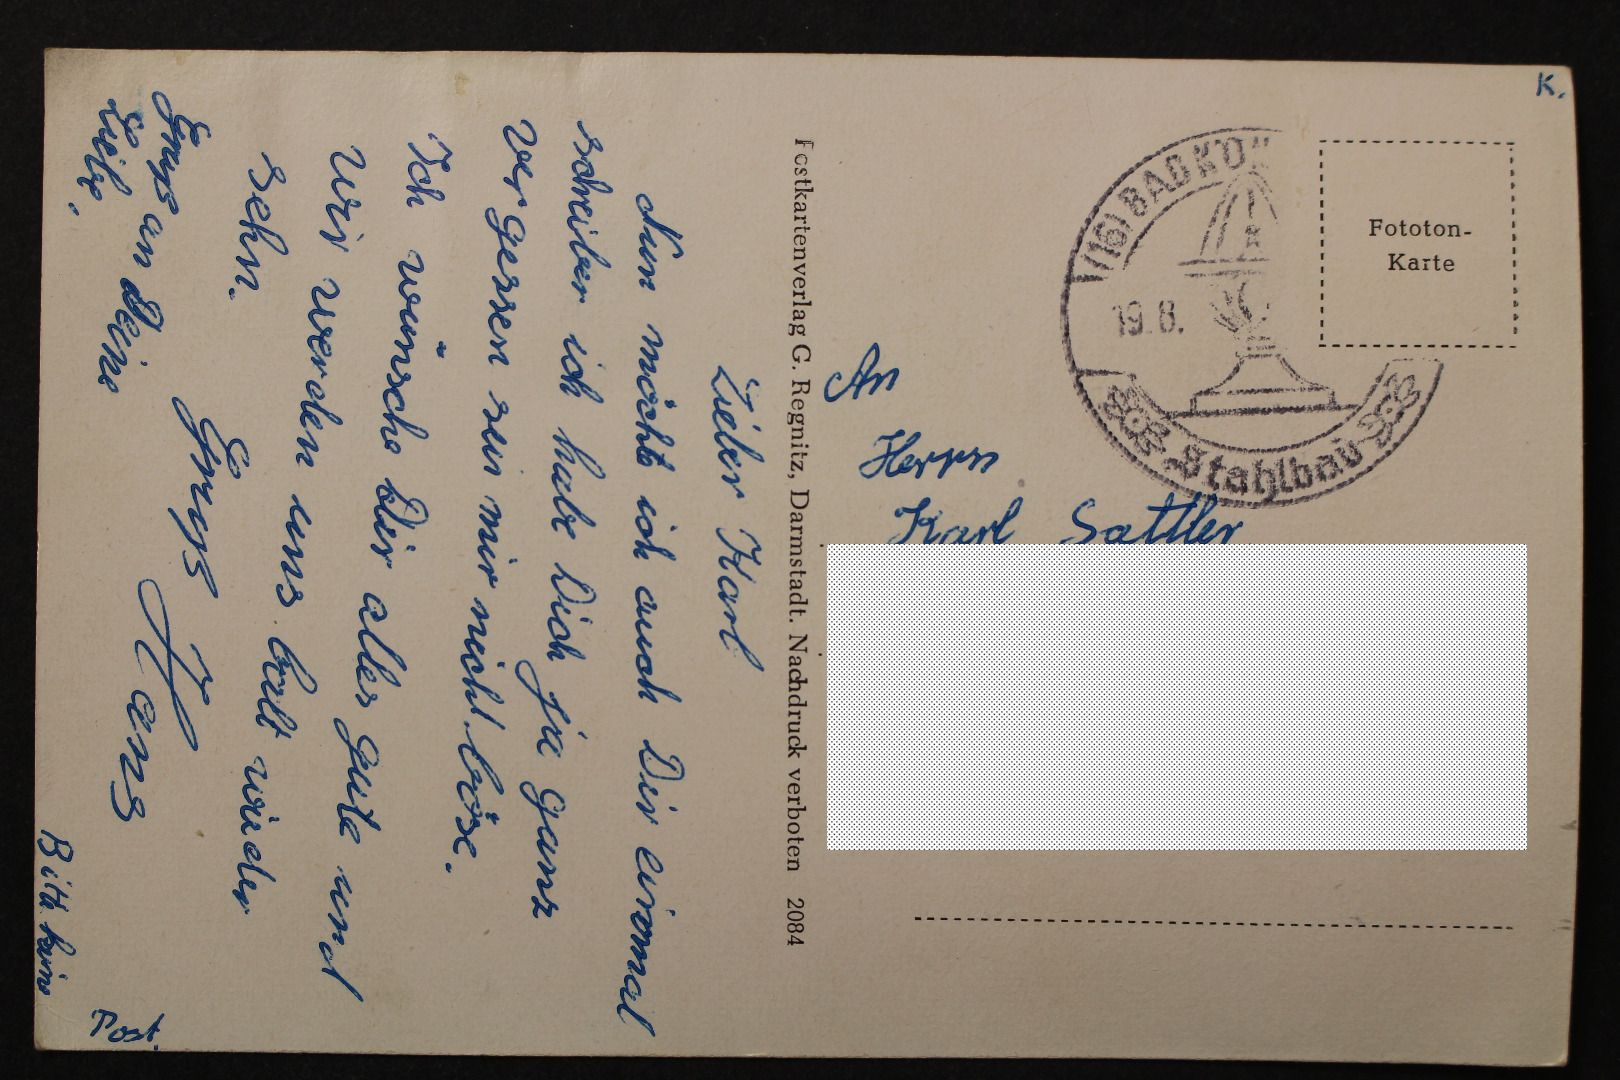 Lieber Karl
Nun möchte ich auch Dir einmal
schreiben ich habe Dich ja ganz
vergessen sei mir nicht böse.
Ich wünsche Dir alles gute und
Wir werden uns balt wieder
sehn.
Gruss Hans
Gruss an Deine
Liebe.
Bitte keine
Post.
Postkartenverlag G. Regnitz, Darmstadt. Nachdruck verboten 2084
K.
Fototon-
Karte
(16) BAD KÖ
19.8.
Stahlbad
An
Herrn
Karl Sattler